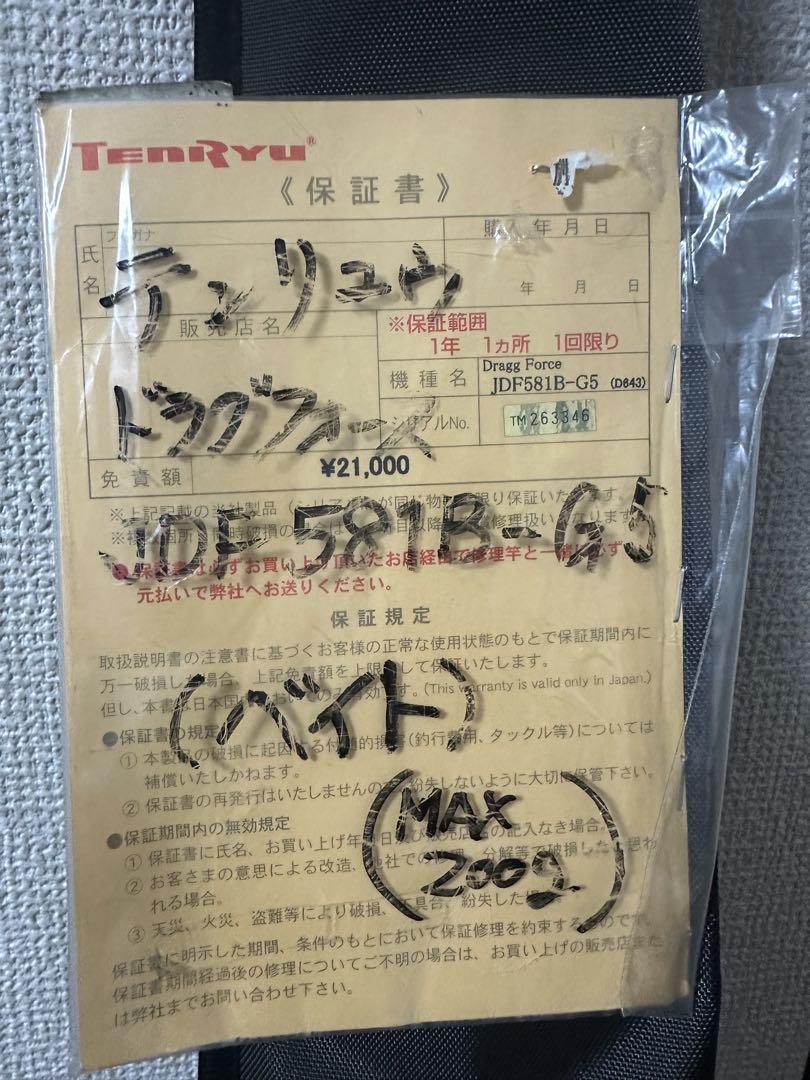 TENRYU®
《保証書》
氏名
フリガナ
購入年月日
年 月 日
テンリュウ
販売店名
※保証範囲
1年 1ヵ所 1回限り
機種名
Dragg Force
JDF581B-G5 (D643)
シリアルNo.
TM263346
ドラグフォース
免責額
¥21,000
JDF581B-G5
●保証書は必ずお買い上げ頂いたお店経由で修理竿と一緒に必ず
元払いで弊社へお送りください。
保証規定
取扱説明書の注意書に基づくお客様の正常な使用状態のもとで保証期間内に
万一破損した場合、上記免責額を上限として保証いたします。
但し、本書は日本国内においてのみ有効です。(This warranty is valid only in Japan.)
(ベイト)
●保証書の規定
① 本製品の破損に起因する付随的損害(釣行費用、タックル等)については
補償いたしかねます。
② 保証書の再発行はいたしませんので、紛失しないように大切に保管下さい。
(MAX
200g)
●保証期間内の無効規定
① 保証書に氏名、お買い上げ年月日及び販売店名の記入なき場合。
② お客さまの意思による改造、他社での修理、分解等で破損したと思わ
れる場合。
③ 天災、火災、盗難等により破損、不具合、紛失した場合。
保証書に明示した期間、条件のもとにおいて保証修理を約束するものです。
保証書期間経過後の修理についてご不明の場合は、お買い上げの販売店また
は弊社までお問い合わせ下さい。